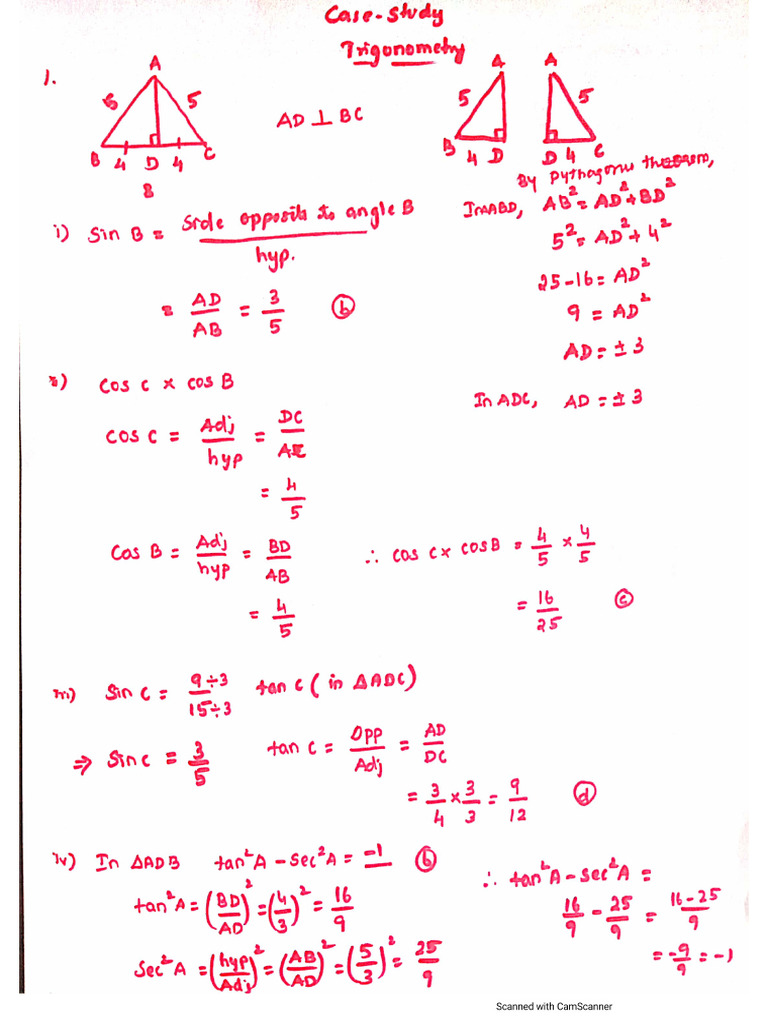 Case-Study
Trigonometry
1.
A
5 5
B 4 D 4 C
8
AD ⊥ BC
A A
5 5
B 4 D D 4 C
By Pythagorus theorem,
In ΔABD, AB² = AD² + BD²
5² = AD² + 4²
25-16 = AD²
9 = AD²
AD = ± 3
In ADC, AD = ± 3
i) Sin B = Side opposite to angle B / hyp.
= AD/AB = 3/5 (b)
ii) cos C × cos B
cos C = Adj/hyp = DC/AC
= 4/5
Cos B = Adj/hyp = BD/AB
= 4/5
∴ cos C × cos B = 4/5 × 4/5
= 16/25 (c)
iii) Sin C = 9÷3/15÷3 tan C ( in ΔADC)
⇒ Sin C = 3/5 tan C = Opp/Adj = AD/DC
= 3/4 × 3/3 = 9/12 (d)
iv) In ΔADB tan²A - sec²A = -1 (b)
tan²A = (BD/AD)² = (4/3)² = 16/9
Sec²A = (hyp/Adj)² = (AB/AD)² = (5/3)² = 25/9
∴ tan²A - sec²A =
16/9 - 25/9 = 16-25/9
= -9/9 = -1
Scanned with CamScanner